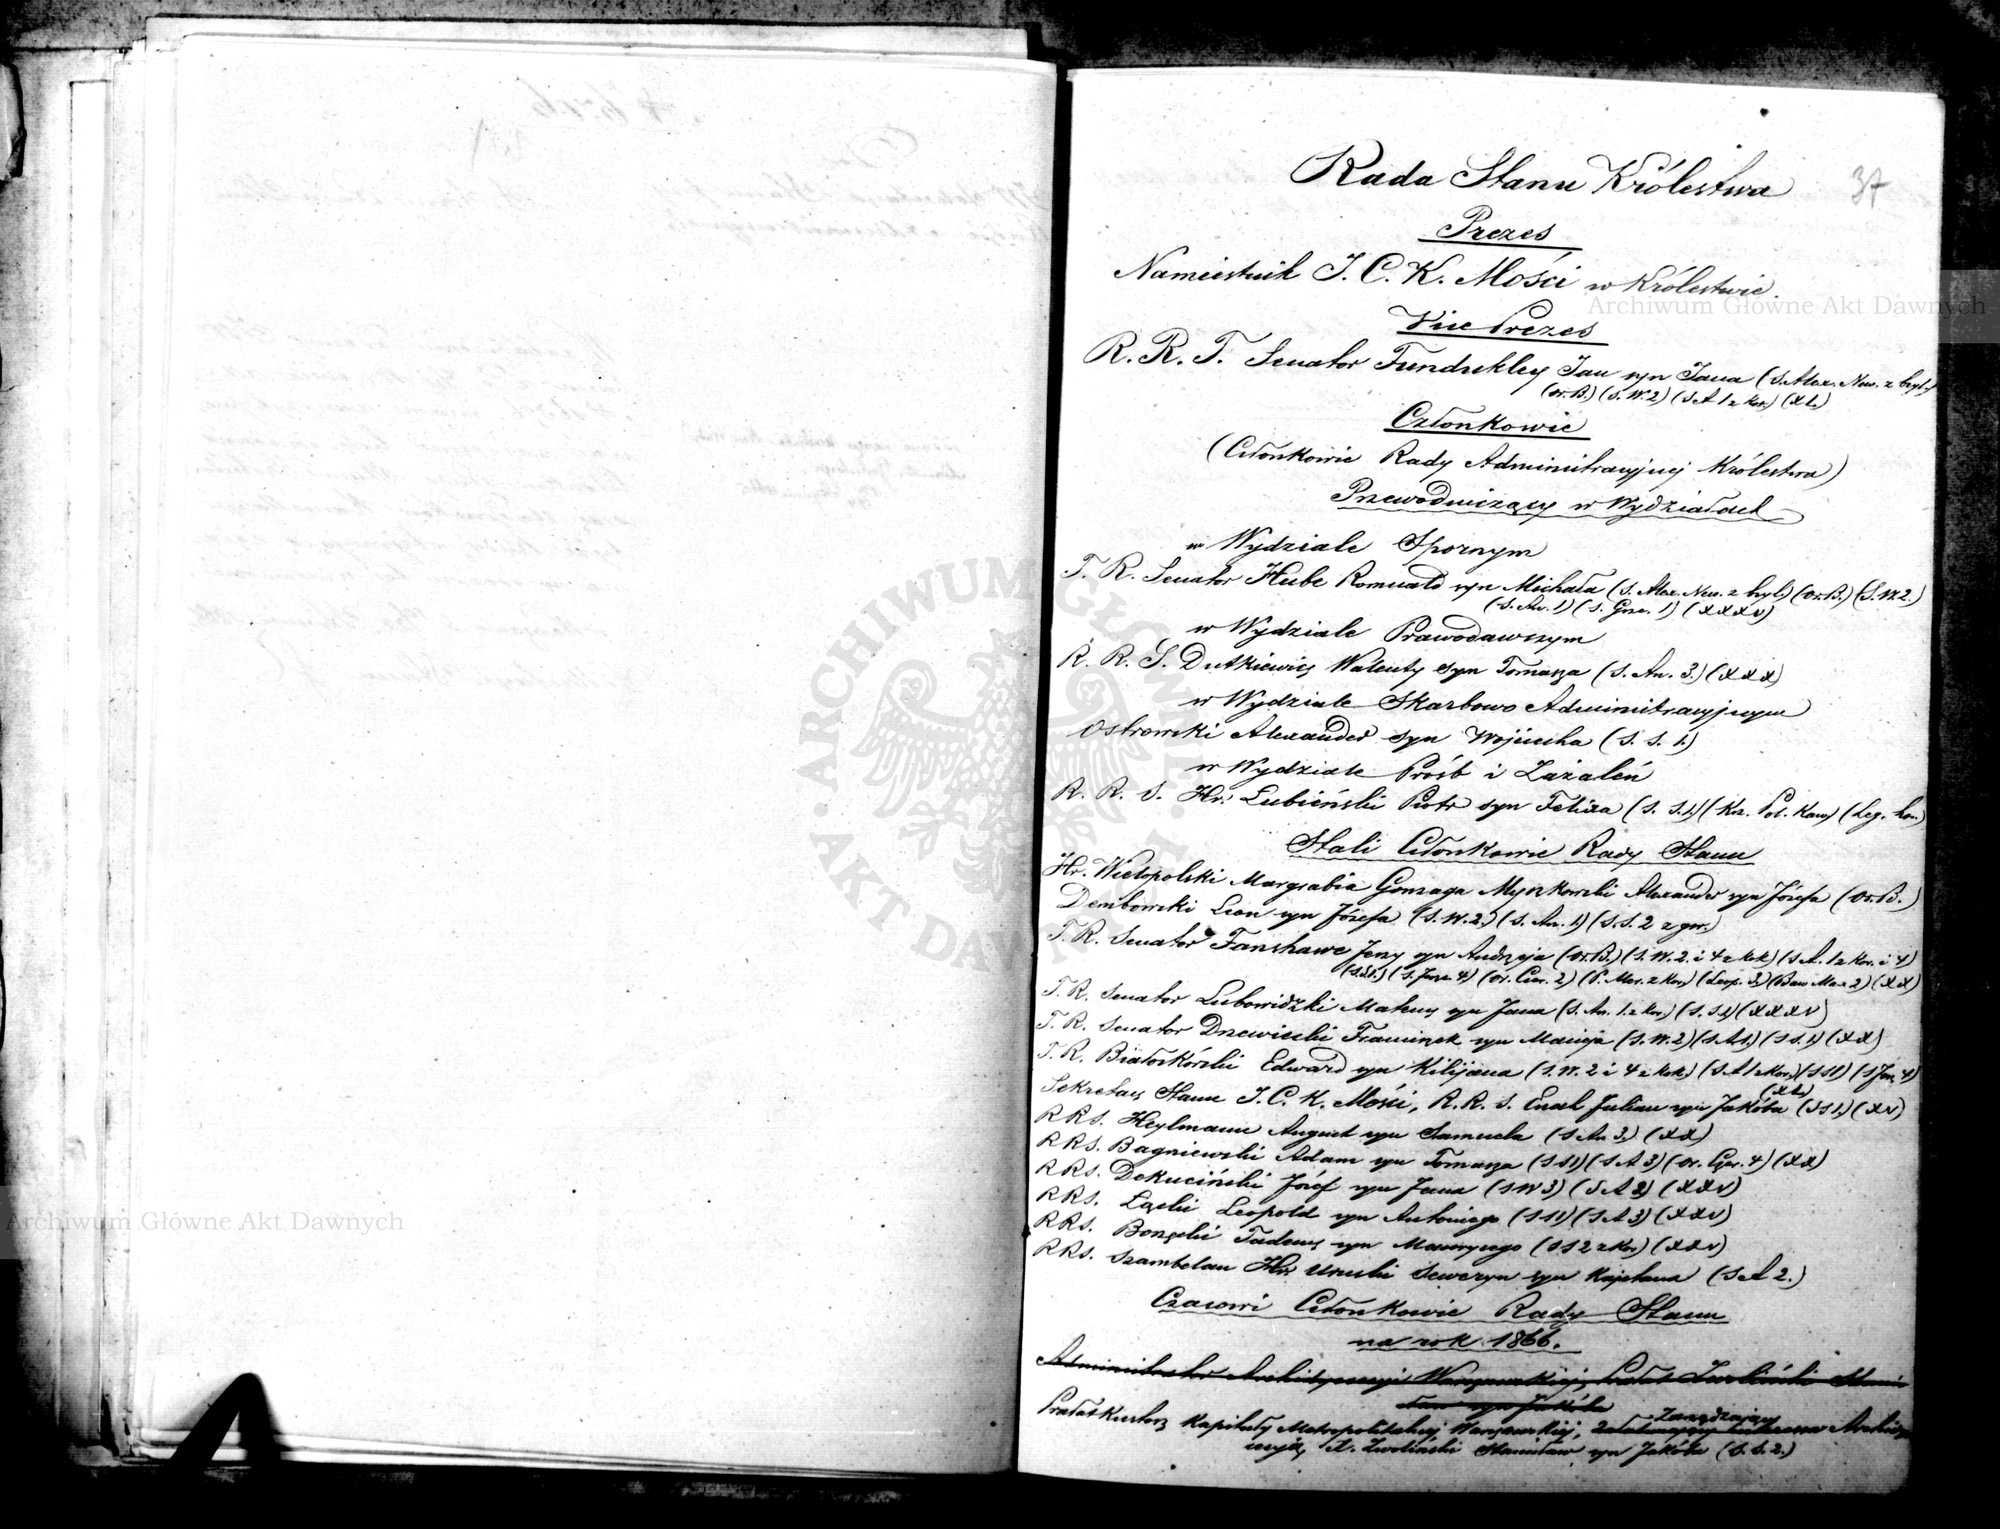 Rada Stanu Królestwa
37
Prezes
Namiestnik J. C. K. Mości w Królestwie.
Vice Prezes
R. R. T. Senator Fundukley Jan syn Jana (S. Alex. New. z bryl.)
(Or. B.) (S. W. 2) (S A 1 z kor.) (XL)
Członkowie
(Członkowie Rady Administracyjnej Królestwa)
Przewodniczący w Wydziałach
w Wydziale Spornym
T. R. Senator Hube Romuald syn Michała (S. Alex. New. z bryl.) (Or. B.) (S. W. 2.)
(S. An. 1) (S. Grze. 1) (XXXV)
w Wydziale Prawodawczym
R. R. S. Dutkiewicz Walenty syn Tomasza (S. An. 3.) (XXX)
w Wydziale Skarbowo Administracyjnym
Ostrowski Alexander syn Wojciecha (S. S. 1.)
w Wydziale Próśb i Zażaleń
R. R. S. Hr. Łubieński Piotr syn Felixa (S. S. 1.) (Kr. Pol. Kaw.) (Leg. hon.)
Stali Członkowie Rady Stanu
Hr. Wielopolski Margrabia Gonzaga Myszkowski Alexander syn Józefa (Or. B.)
Dembowski Leon syn Józefa (S. W. 2.) (S. An. 1) (S. S. 2 z gw.)
T. R. Senator Fanshawe Jerzy syn Andrzeja (Or. B.) (S. W. 2. i 4 z kok.) (S A. 1 z kor. i 4)
(S. S. 1.) (S. Jerz. 4) (Or. Czer. 2) (P. Mer. z kor.) (Leop. 3.) (Baw Max 2) (XX)
T. R. Senator Lubowidzki Mateusz syn Jana (S. An. 1. z kor.) (S. S 1) (XXXV)
T. R. Senator Drzewiecki Franciszek syn Macieja (S. W. 2) (S A 1.) (S S. 1.) (XX)
T. R. Białoskórski Edward syn Kilijana (S. W. 2 i 4 z kok.) (S A 1 z kor.) (S S 1) (S Jerz. 4)
(XL)
Sekretarz Stanu J. C. K. Mości, R. R. S. Enoch Julian syn Jakóba (S S 1.) (XV)
R R S. Heylmann August syn Samuela (S An 3.) (XX)
R R S. Bagniewski Adam syn Tomasza (S S 1) (S A 3) (Or. Czer. 4) (XX)
R R S. Dekuciński Józef syn Jana (S W 3) (S A 2) (XXV)
R R S. Łącki Leopold syn Antoniego (S S 1) (S A 3) (XXV)
R R S. Bonzecki Tadeusz syn Maurycego (S S 2 z kor) (XXV)
R R S. Szambelan Hr. Uruski Seweryn syn Kajetana (S A 2.)
Czasowi Członkowie Rady Stanu
na rok 1866.
Administrator Archidyecezyi Warszawskiej, Prałat Zwoliński Stani-
sław syn Jakóba
Zarządzający
Prałat Kustosz Kapituły Metropolitalnej Warszawskiej, Archidye-
cezyją, X. Zwoliński Stanisław syn Jakóba (S. S. 2.)
Archiwum Główne Akt Dawnych
Archiwum Główne Akt Dawnych
ARCHIWUM GŁÓWNE AKT DAWNYCH